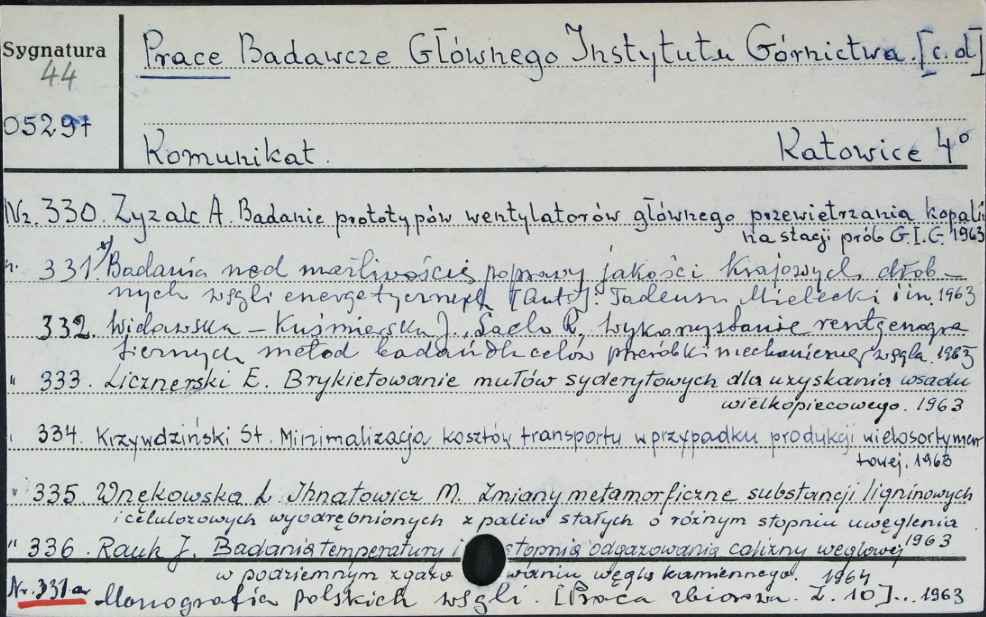 Sygnatura
44
05297
Prace Badawcze Głównego Instytutu Górnictwa. [c.d]
Komunikat. Katowice 4°
Nr. 330. Zyzak A. Badanie prototypów wentylatorów głównego przewietrzania kopalń
na stacji prób G.I.G. 1963
331 Badania nad możliwością poprawy jakości krajowych drob-
nych węgli energetycznych [Aut.]. Tadeusz Mielecki i in. 1963
332. Widawska-Kuśmierska J., R. Wykorzystanie rentgenogra
ficznych metod badań dla celów przeróbki mechanicznej węgla. 1963
" 333. Licznerski E. Brykietowanie mułów syderytowych dla uzyskania wsadu
wielkopiecowego. 1963
" 334. Krzywdziński St. Minimalizacja kosztów transportu w przypadku produkcji wielosortymen
towej. 1963
" 335. Wnękowska L. Ihnatowicz M. Zmiany metamorficzne substancji ligninowych
i celulozowych wyodrębnionych z paliw stałych o różnym stopniu uwęglenia
1963
" 336. Rauk J. Badania temperatury i stopnia odgazowania calizny węglowej
w podziemnym zgazo waniu węgla kamiennego. 1964
Nr. 331a Monografia polskich węgli. [Praca zbiorowa. Z. 10]... 1963